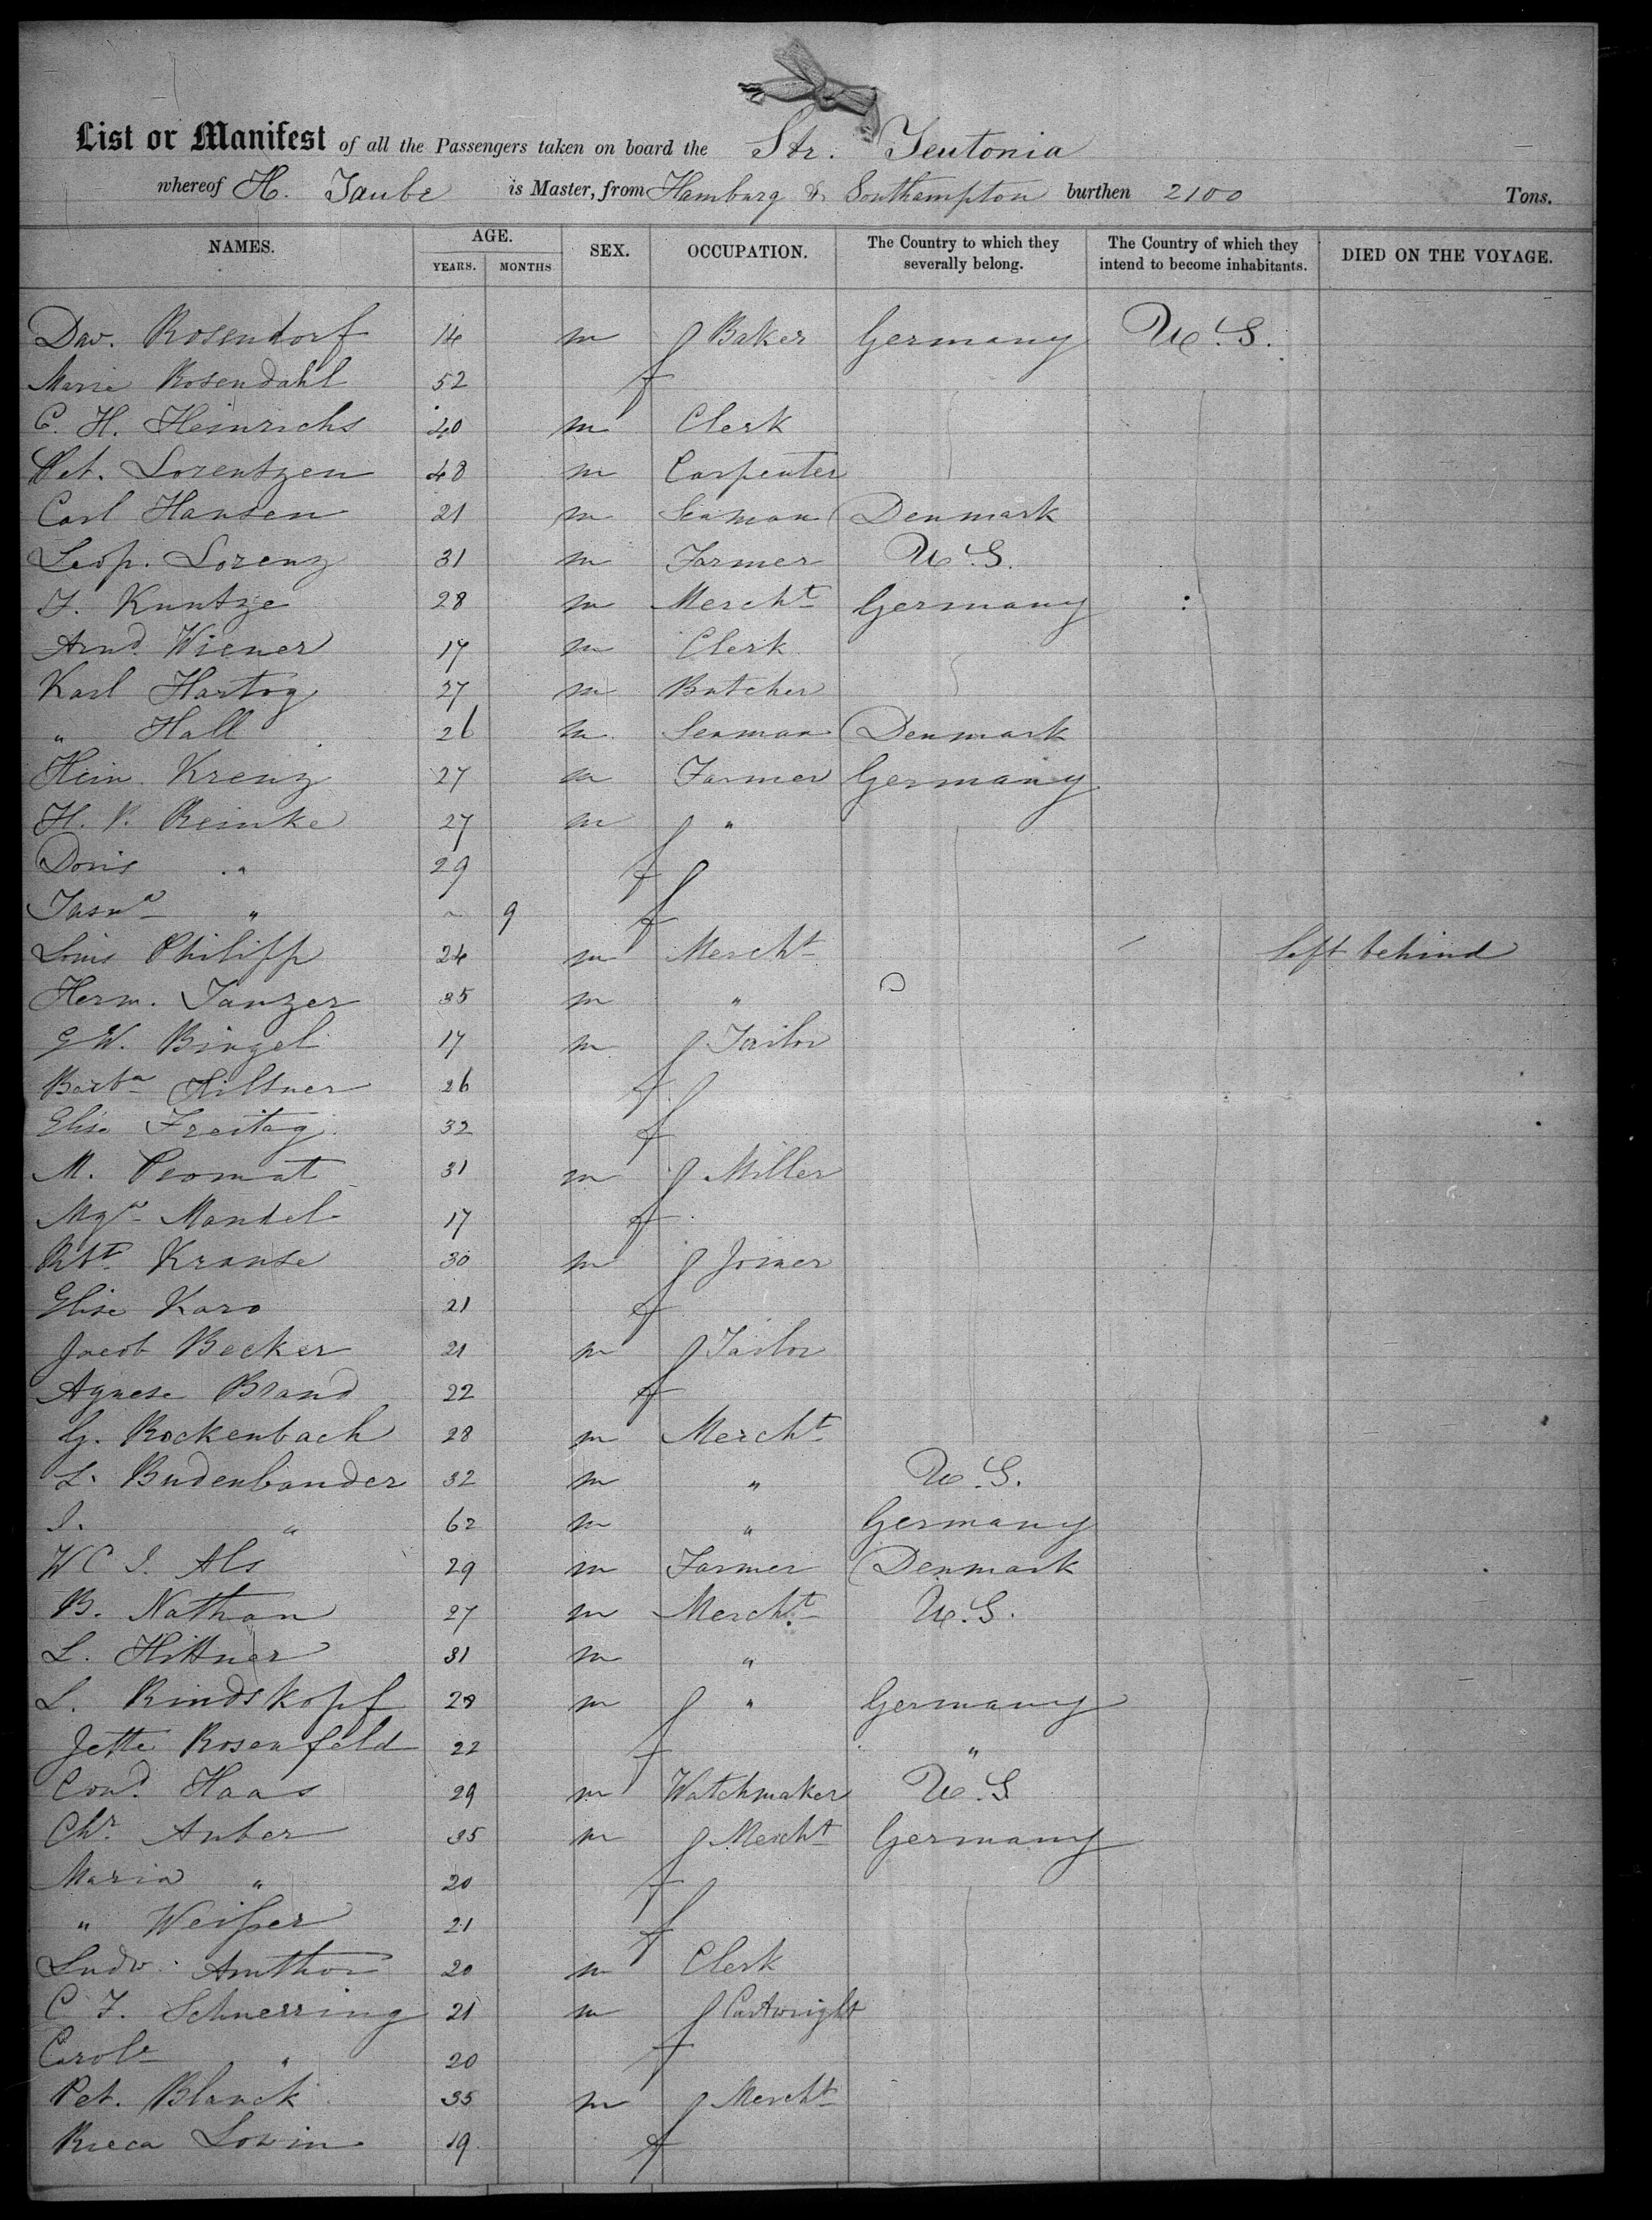 List or Manifest of all the Passengers taken on board the Str. Teutonia
whereof H. Taube is Master, from Hamburg & Southampton burthen 2100 Tons.
NAMES. AGE. SEX. OCCUPATION. The Country to which they severally belong. The Country of which they intend to become inhabitants. DIED ON THE VOYAGE.
YEARS. MONTHS
Dav. Rosendorf 14 m Baker Germany U.S.
Marie Rosendahl 52 f
C. H. Heinrichs 40 m Clerk
Pet. Lorentzen 48 m Carpenter
Carl Hansen 21 m Seaman Denmark
Leop. Lorenz 31 m Farmer U.S.
F. Kuntze 28 m Mercht Germany
Arnd. Wiener 17 m Clerk
Karl Hartog 27 m Butcher
" Hall 26 m Seaman Denmark
Hein. Krenz 27 m Farmer Germany
H. P. Reinke 27 m "
Doris " 29 f
" 9 f
Louis Philipp 24 m Mercht left behind
Herm. Tanzer 35 m "
G W. Bingel 17 m Tailor
Barba Hiltner 26 f
Elise Freitag 32 f
M. Promat 31 m Miller
Mgr. Mandel 17 f
Rbt. Krause 30 m Joiner
Elise Karo 21 f
Jacob Becker 21 m Tailor
Agnese Brand 22 f
G. Rockenbach 28 m Mercht
L. Budenbander 32 m " U.S.
I. " 62 m " Germany
W C I. Als 29 m Farmer Denmark
B. Nathan 27 m Mercht U.S.
L. Hittner 31 m "
L. Rindskopf 28 m " Germany
Jette Rosenfeld 22 f "
Cond. Haas 29 m Watchmaker U.S
Chr. Auber 35 m Mercht Germany
Maria " 20 f
" Weißer 21 f
Ludw. Amthor 20 m Clerk
C F. Schnerring 21 m Cartwright
Carole " 20 f
Pet. Blanck 35 m Mercht
Rieca Lowin 19 f